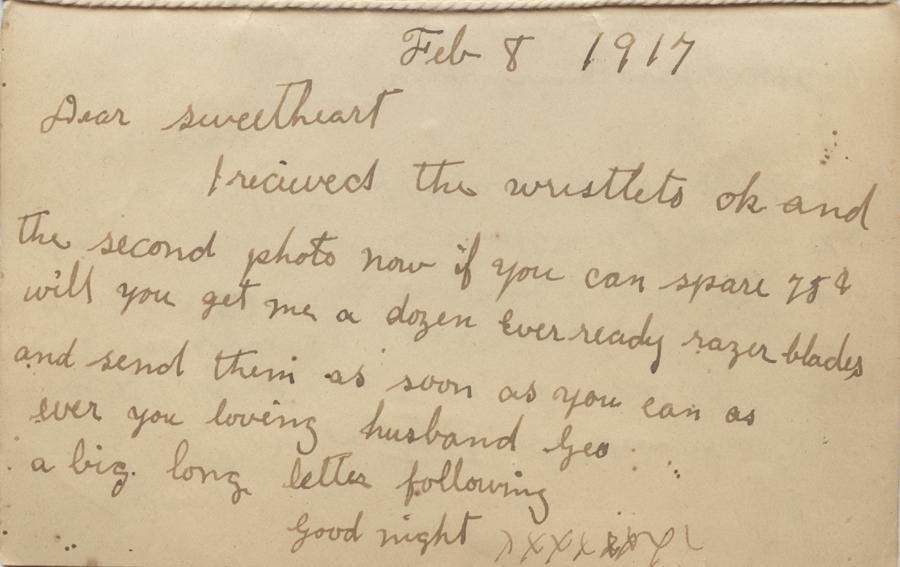 Feb 8 1917
Dear sweetheart
I recieved the wristlets ok and
the second photo now if you can spare 75¢
will you get me a dozen Ever ready razer blades
and send them as soon as you can as
ever you loving husband Geo
a big long letter following
Good night xxxxxxxx